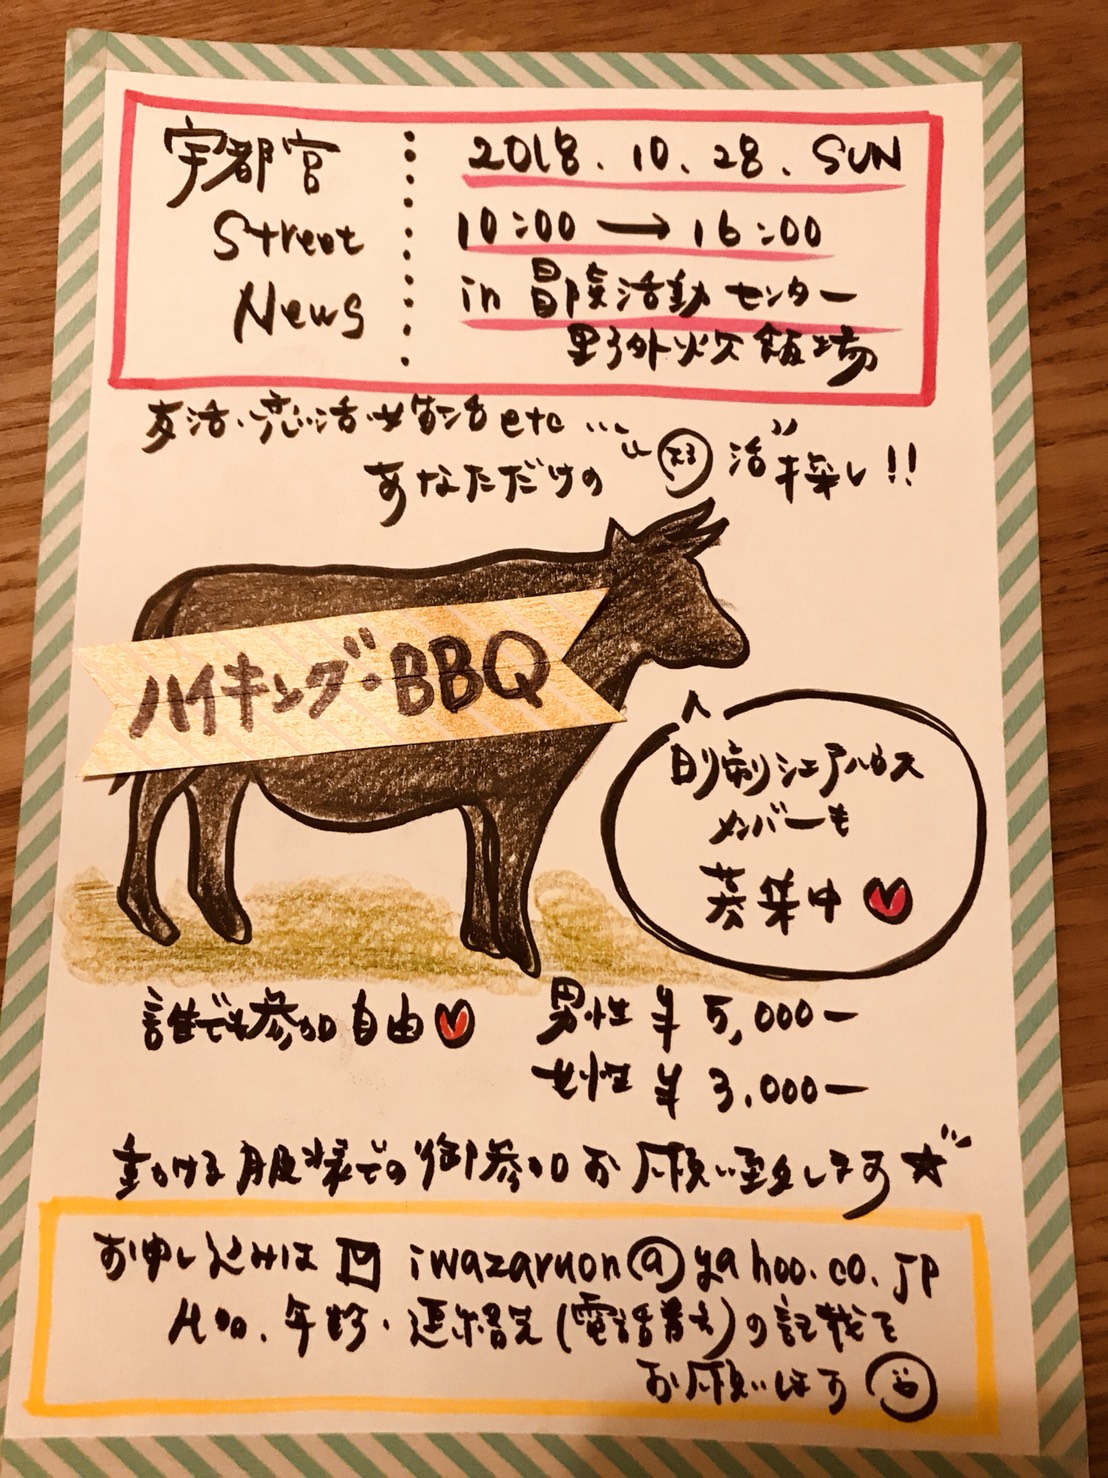 宇都宮
Street
News
2018.10.28.SUN
10:00→16:00
in 冒険活動センター
野外炊飯場
友活・恋活・女子活etc…
あなただけの"活"探し!!
ハイキング・BBQ
シェアハウス
メンバーも
募集中♥
誰でも参加自由♥
男性 ¥5,000ー
女性 ¥3,000ー
動ける服装での御参加お願い致します☆
お申し込みは iwazaruon@yahoo.co.jp
年齢・連絡先(電話番号)の記載を
お願いします